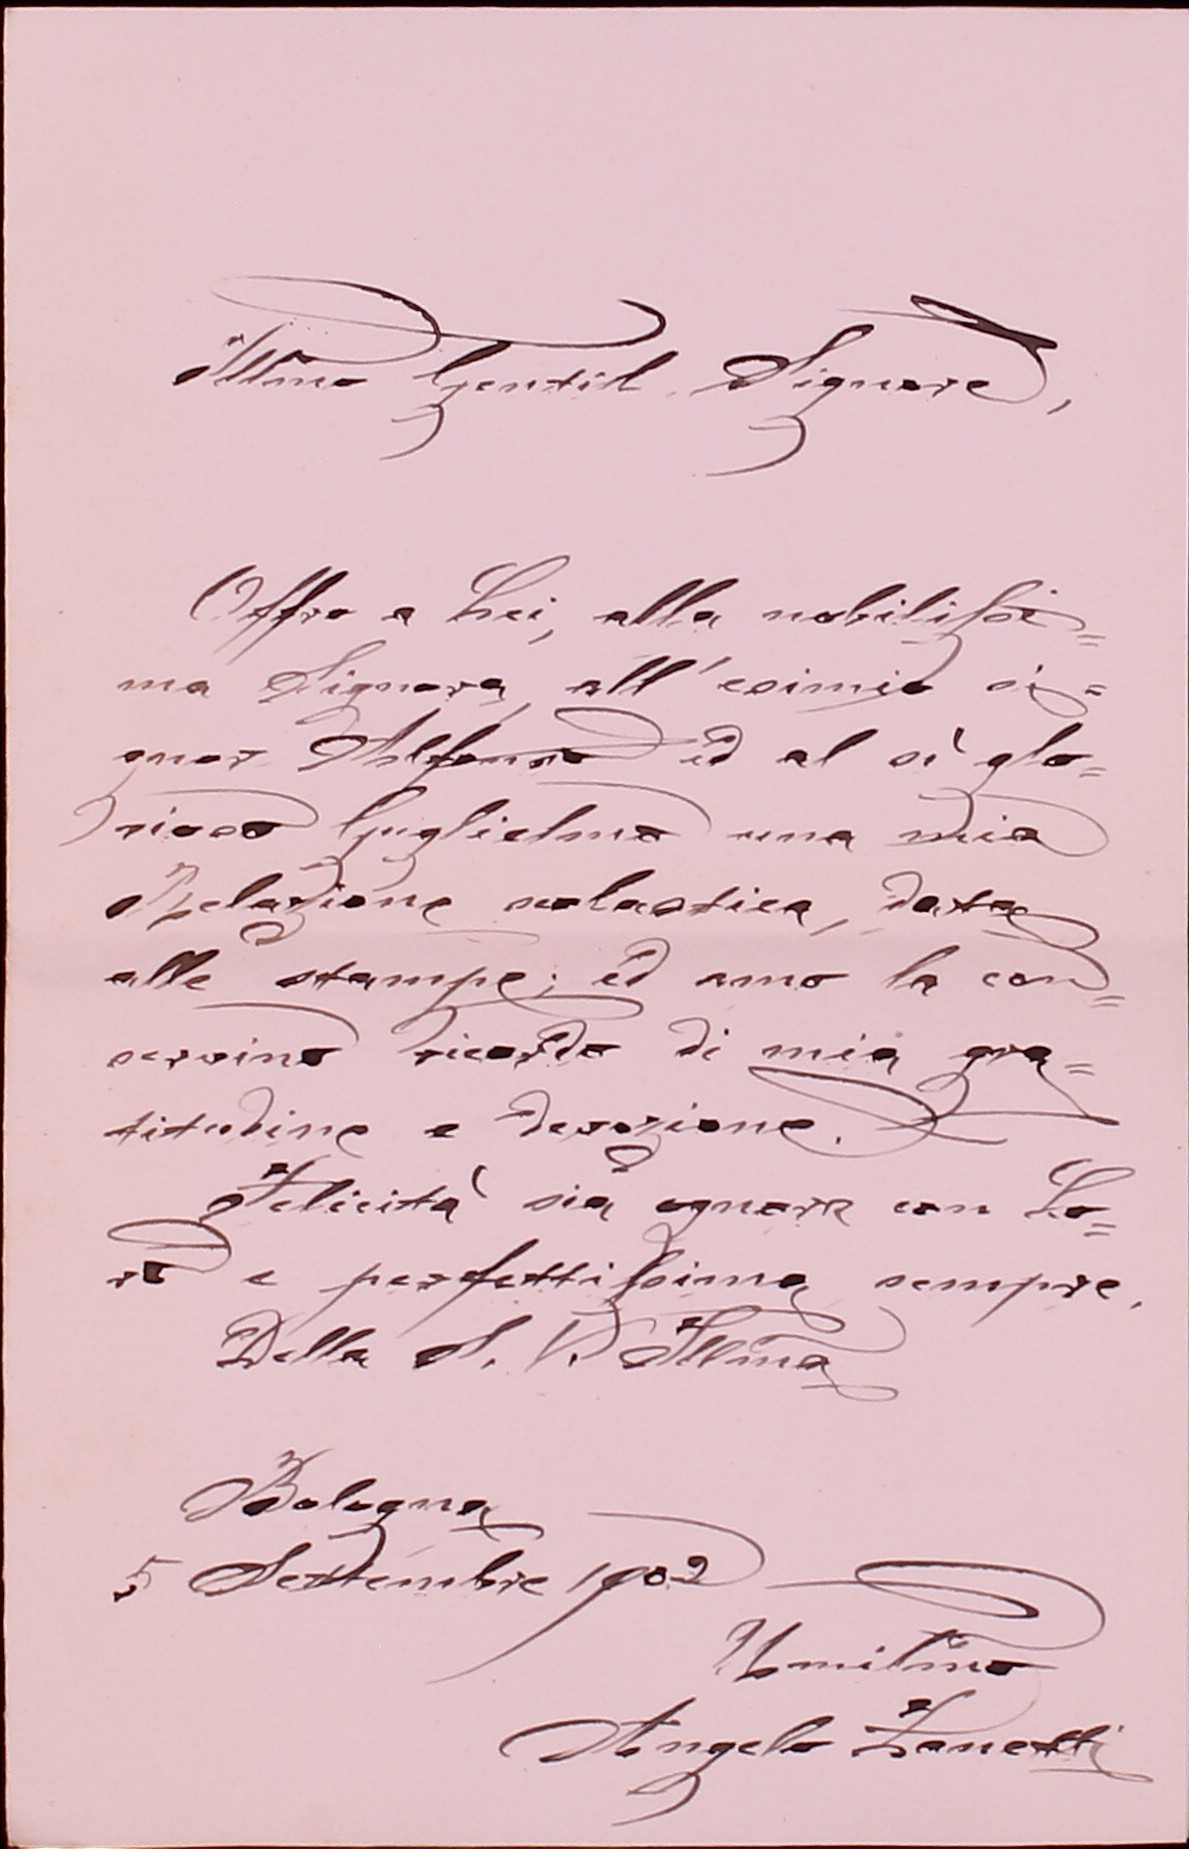 Illmo Gentil Signore,
Offro a Lei, alla nobilissi=
ma Signora, all'esimio si=
gnor Alfonso ed al sì glo=
rioso Guglielmo una mia
Relazione scolastica, data
alle stampe; ed amo la con=
servino ricordo di mia gra=
titudine e devozione.
Felicità sia ognora con Lo=
ro e perfettissima sempre.
Della S. V. Illma
Bologna
5 Settembre 1902
Umilmo
Angelo Zanetti